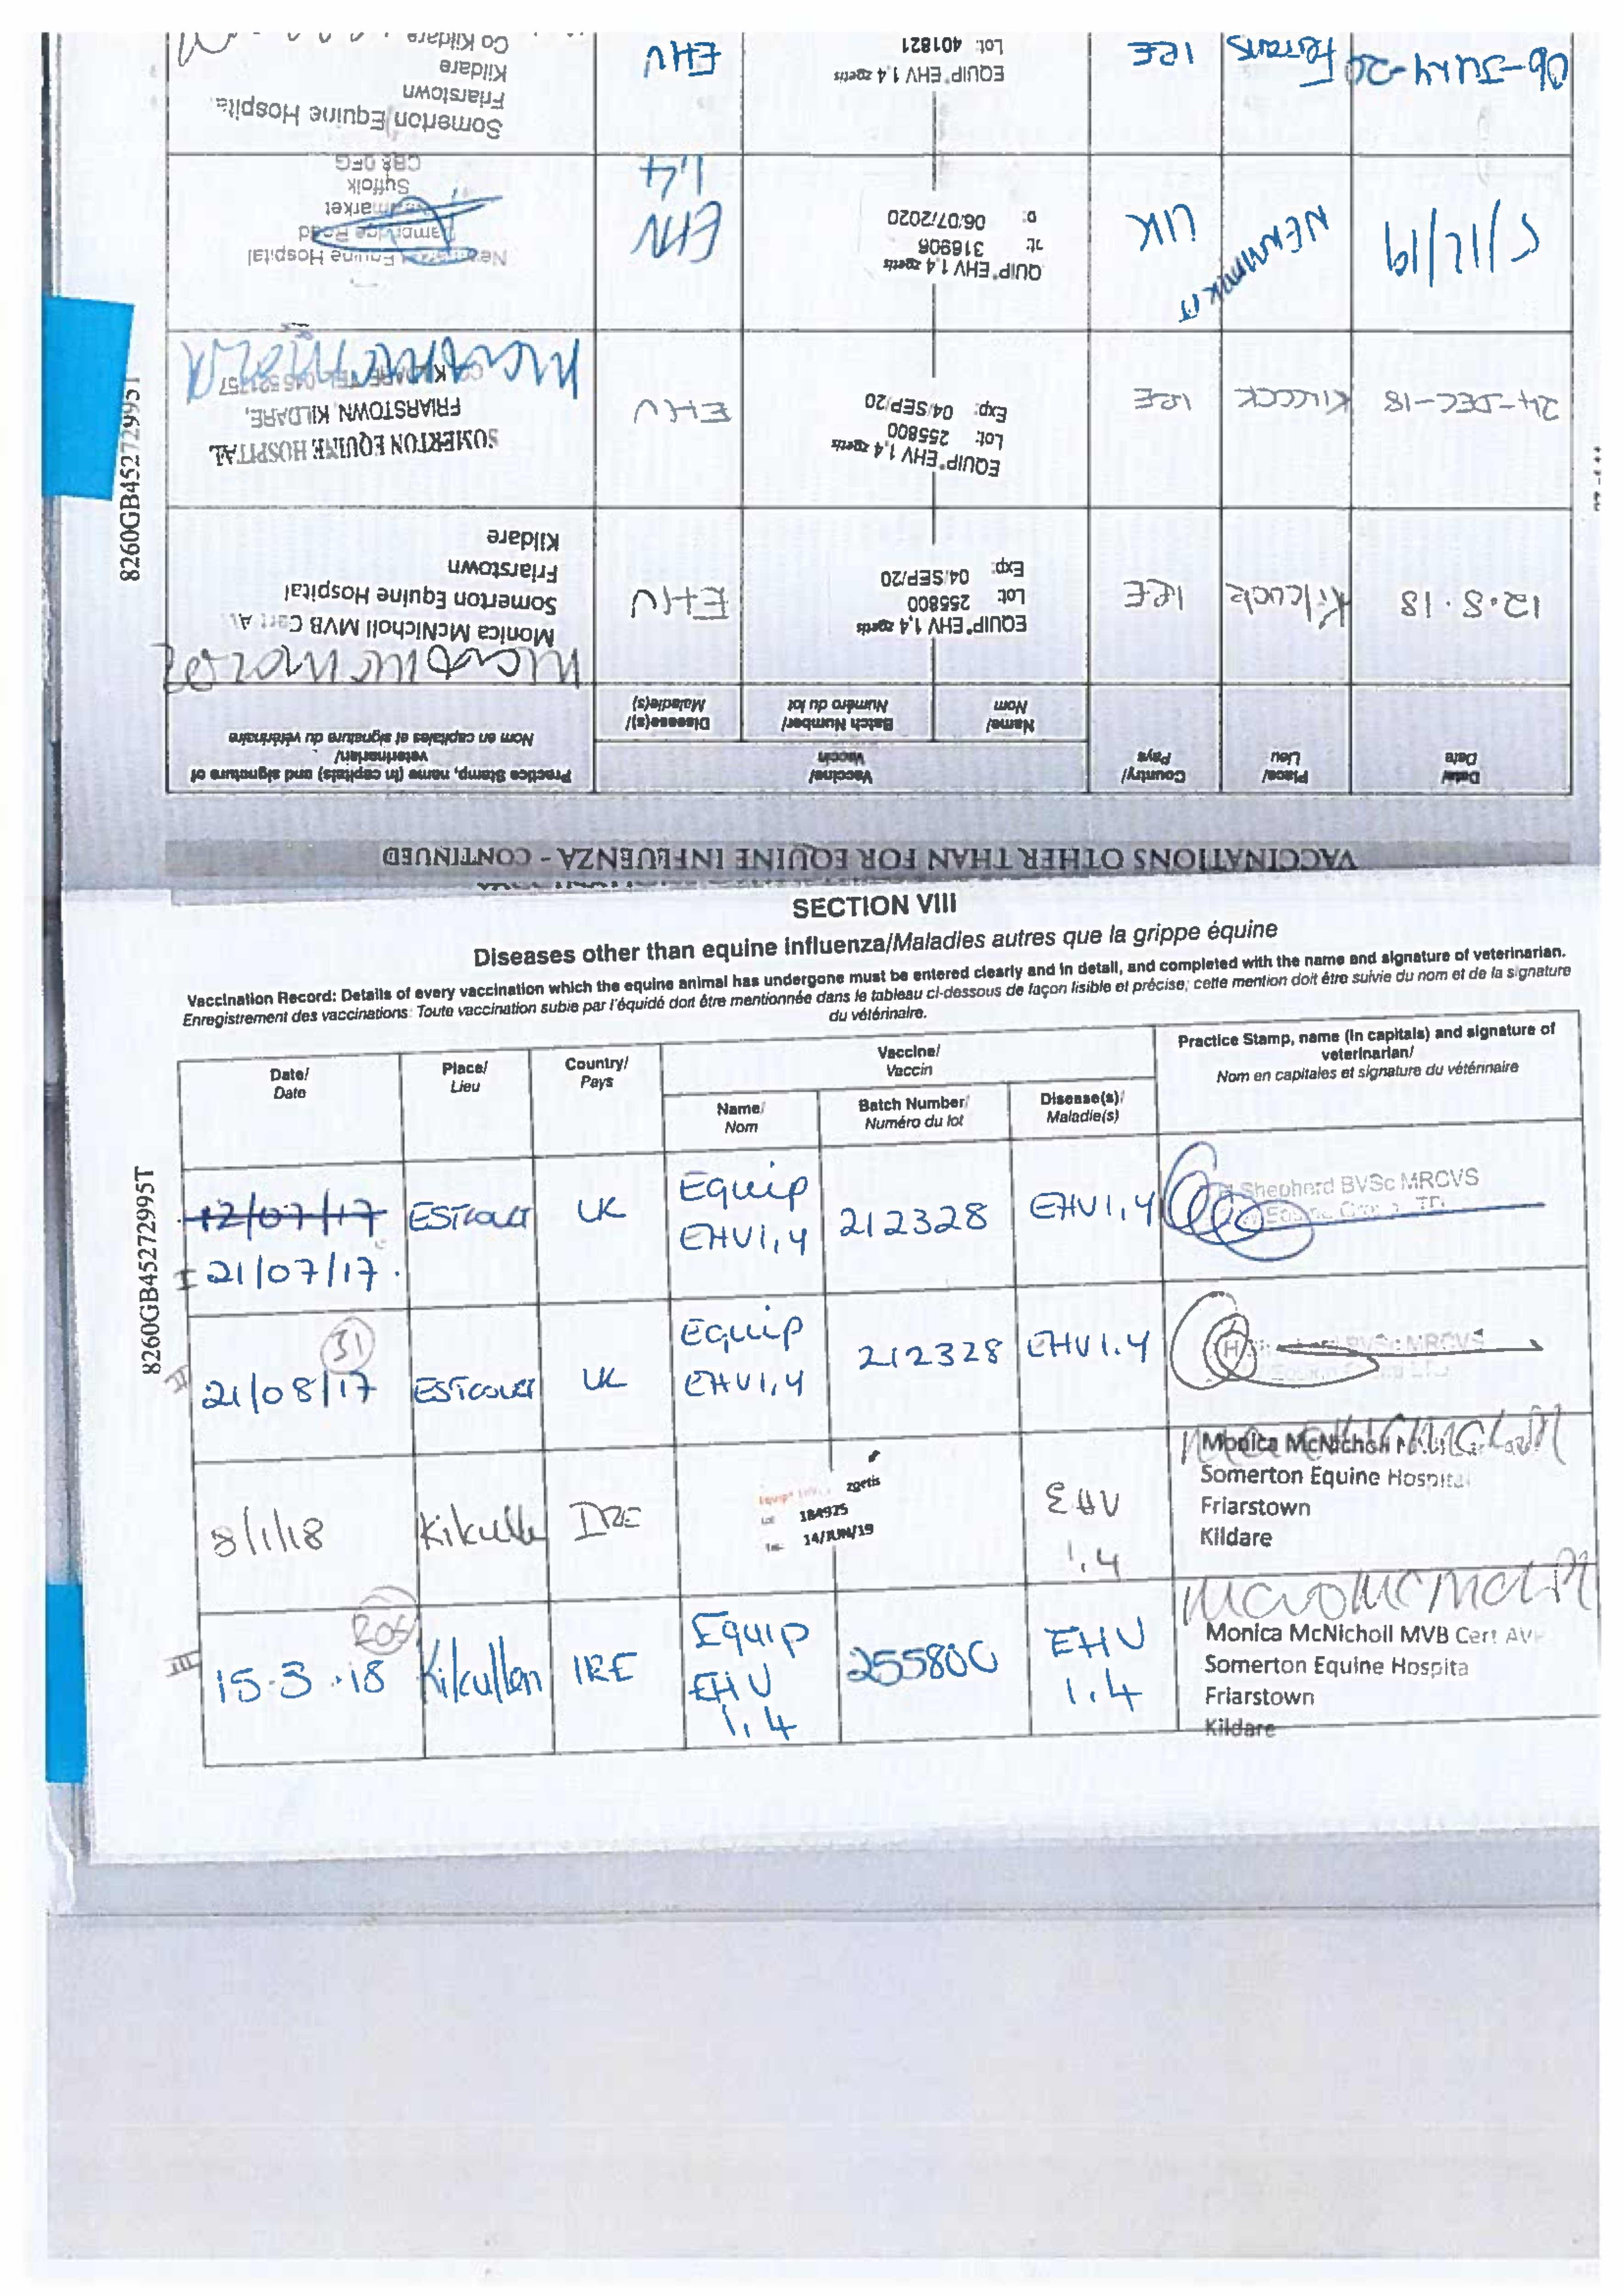 VACCINATIONS OTHER THAN FOR EQUINE INFLUENZA - CONTINUED
Date/
Date
Place/
Lieu
Country/
Pays
Vaccine/
Vaccin
Name/
Nom
Batch Number/
Numéro du lot
Disease(s)/
Maladie(s)
Practice Stamp, name (in capitals) and signature of
veterinarian/
Nom en capitales et signature du vétérinaire
12.8.18
Kilcock
IRE
EQUIP EHV 1,4 zoetis
Lot: 255800
Exp: 04/SEP/20
EHV
Monica McNicholl MVB Cert A
Somerton Equine Hospital
Friarstown
Kildare
24-DEC-18
KILCOCK
IRE
EQUIP EHV 1,4 zoetis
Lot: 255800
Exp: 04/SEP/20
EHV
SOMERTON EQUINE HOSPITAL
FRIARSTOWN, KILDARE,
5/12/19
NEWMARKET
UK
QUIP EHV 1,4 zoetis
318906
06/07/2020
EHV
1,4
Equine Hospital
Road
market
Suffolk
CB8 0FG
IRE
EQUIP EHV 1,4 zoetis
Lot: 401821
EHV
Somerton Equine Hospita
Friarstown
Kildare
Co Kildare
8260GB45272995T
SECTION VIII
Diseases other than equine influenza/Maladies autres que la grippe équine
Vaccination Record: Details of every vaccination which the equine animal has undergone must be entered clearly and in detail, and completed with the name and signature of veterinarian.
Enregistrement des vaccinations: Toute vaccination subie par l'équidé doit être mentionnée dans le tableau ci-dessous de façon lisible et précise; cette mention doit être suivie du nom et de la signature
du vétérinaire.
Date/
Date
Place/
Lieu
Country/
Pays
Vaccine/
Vaccin
Name/
Nom
Batch Number/
Numéro du lot
Disease(s)/
Maladie(s)
Practice Stamp, name (in capitals) and signature of
veterinarian/
Nom en capitales et signature du vétérinaire
8260GB45272995T
12/07/17
I 21/07/17.
ESTCOURT
UK
Equip
EHV1,4
212328
EHV1,4
Shepherd BVSc MRCVS
31
II 21/08/17
ESTCOURT
UK
Equip
EHV1,4
212328
EHV1.4
BVSc MRCVS
8/1/18
IRE
zoetis
184925
14/JUN/19
EHV
1.4
Monica McNicholl
Somerton Equine Hospita
Friarstown
Kildare
III 15.3.18
Kilkullen
IRE
Equip
EHV
1,4
255800
EHV
1.4
Monica McNicholl MVB Cert AV
Somerton Equine Hospita
Friarstown
Kildare